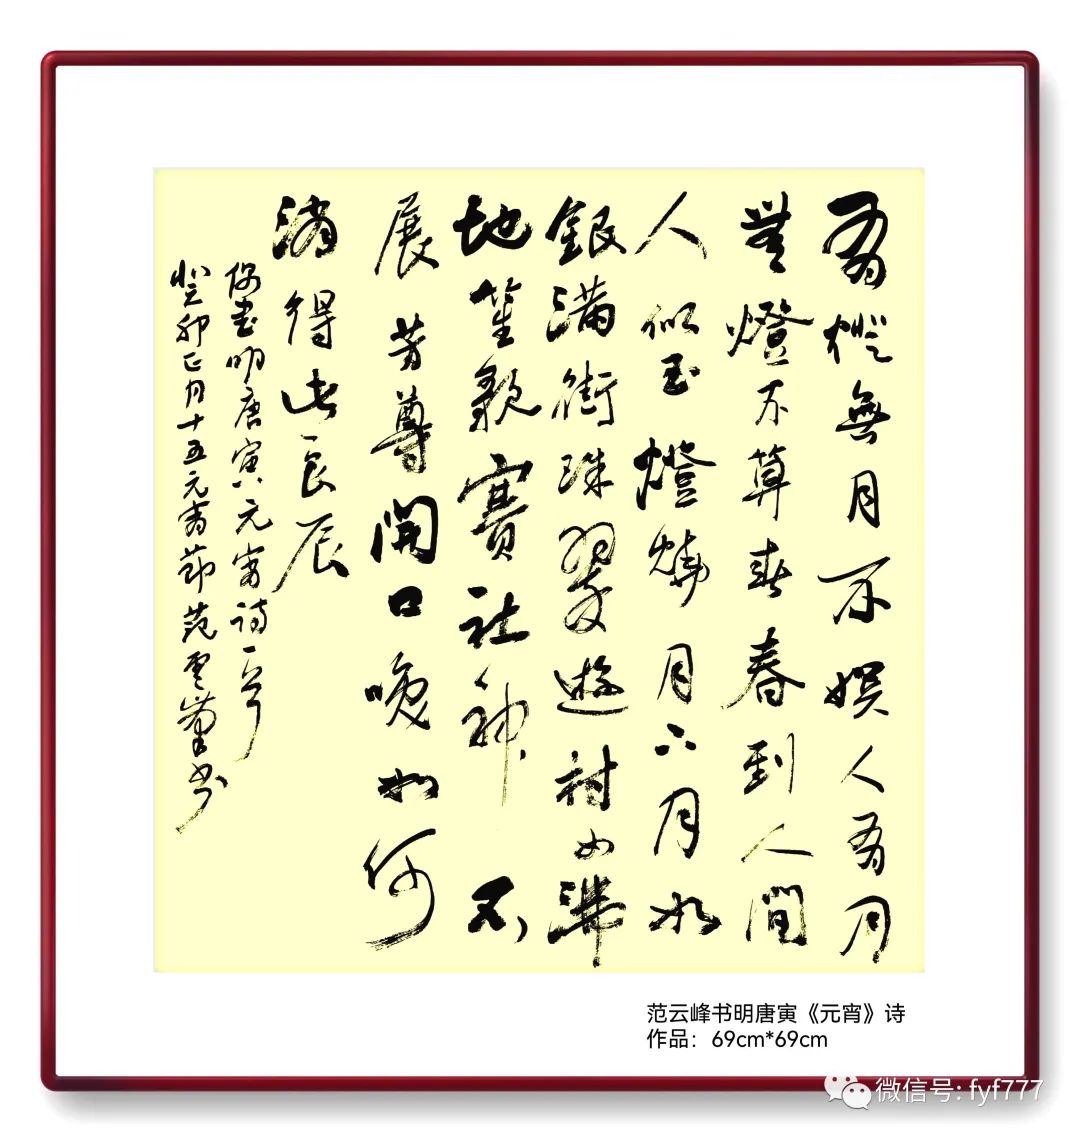 有燈無月不娛人有月
無燈不算春春到人間
人似玉燈燒月下月如
銀滿街珠翠遊村女沸
地笙歌賽社神不
展芳尊開口咲如何
消得此良辰
書明唐寅元宵詩一首
癸卯正月十五元宵節范雲峯书
范云峰书明唐寅《元宵》诗
作品：69cm*69cm
微信号: fyf777